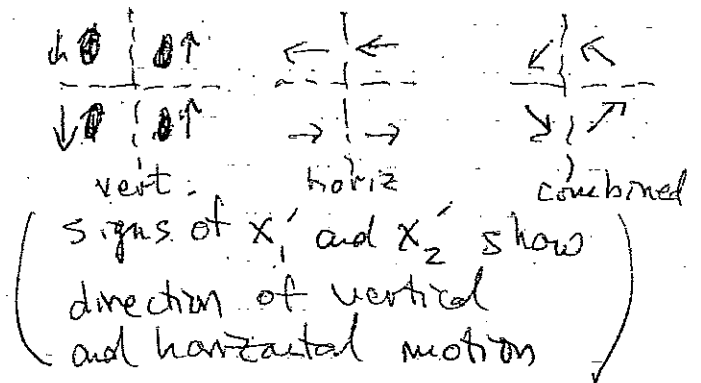 vert. horiz combined
( signs of x₁′ and x₂′ show
direction of vertical
and horizontal motion )